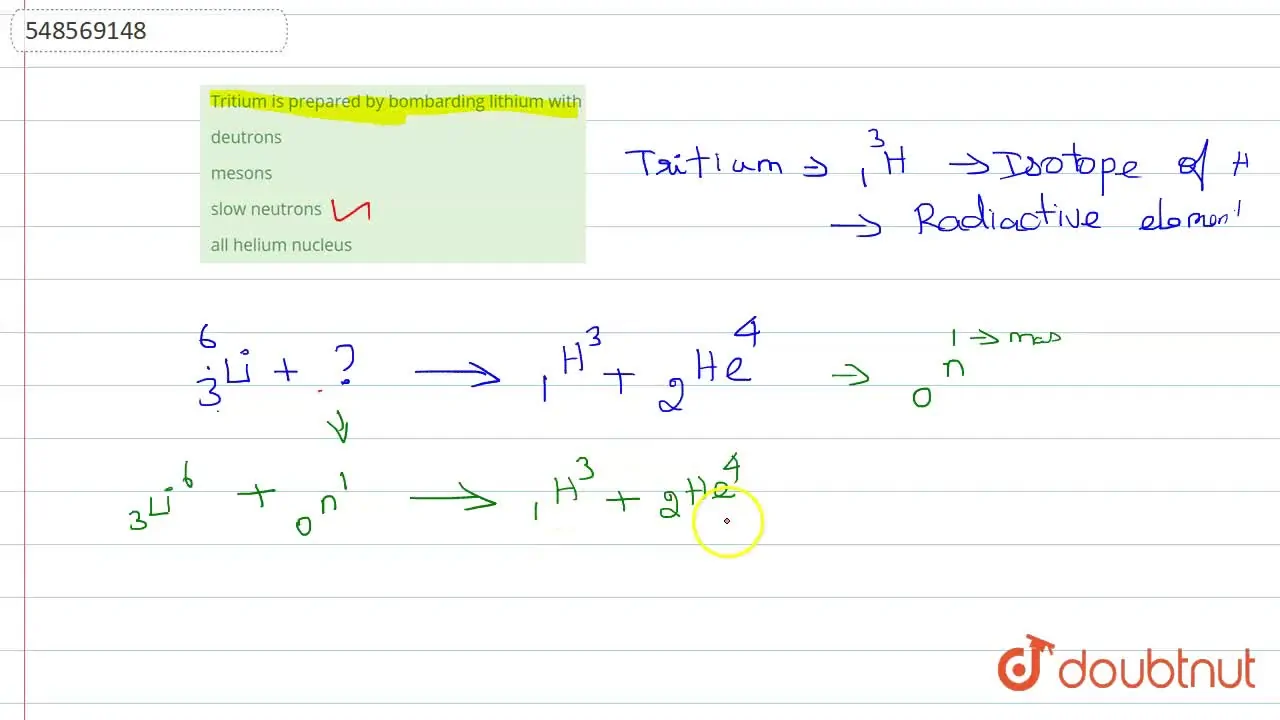 548569148
Tritium is prepared by bombarding lithium with
deutrons
mesons
slow neutrons
all helium nucleus
Tritium ⇒ ₁³H → Isotope of H
→ Radiactive element
⁶₃Li + ? → ₁H³ + ₂He⁴ → ₀n¹ → mas
₃Li⁶ + ₀n¹ → ₁H³ + ₂He⁴
doubtnut